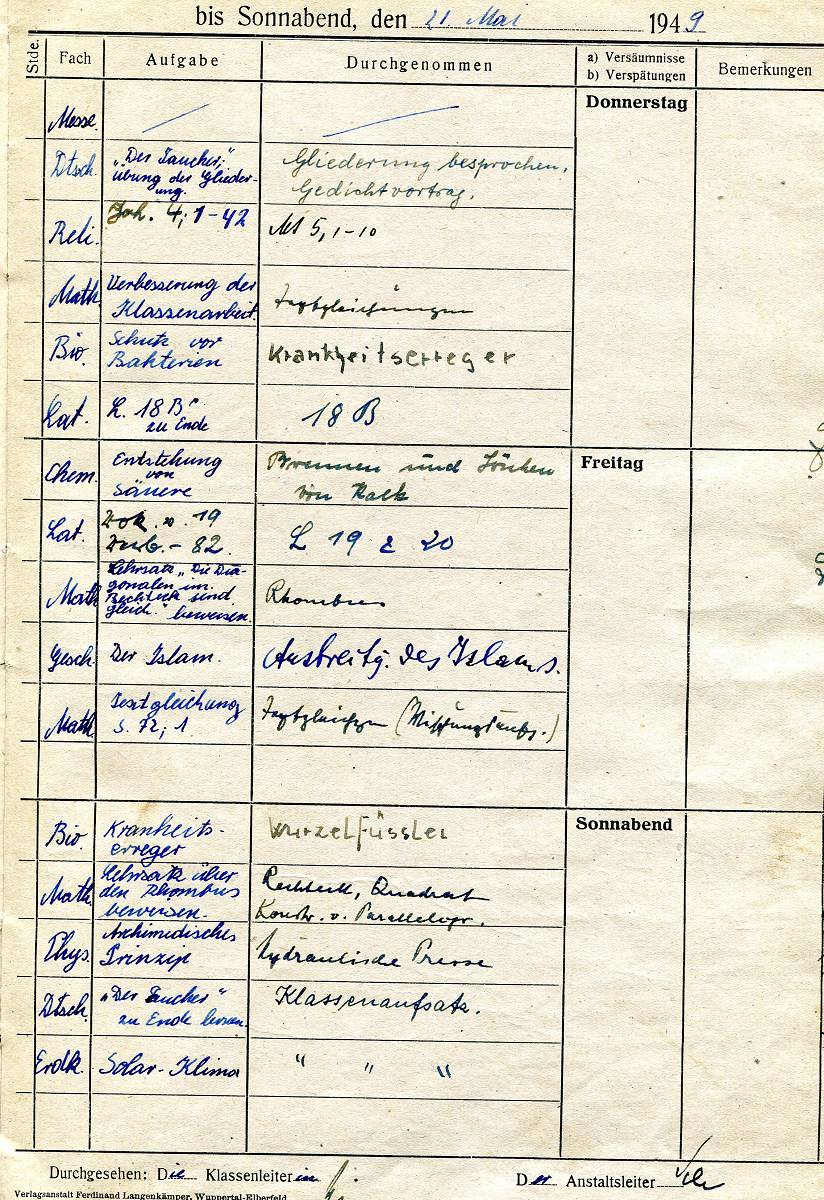 bis Sonnabend, den 21. Mai 1949
Stde. Fach Aufgabe Durchgenommen a) Versäumnisse b) Verspätungen Bemerkungen
Donnerstag
Messe.
Dtsch. „Der Taucher“; Gliederung besprochen.
übung der Glieder- Gedichtvortrag.
ung.
Reli. Joh. 4, 1-42 Mt 5, 1-10
Math. Verbesserung der Textgleichungen
Klassenarbeit.
Bio. Schutz vor Krankheitserreger
Bakterien
Lat. L. 18 B 18 B
zu Ende
Freitag
Chem. Entstehung Brennen und Löschen
von von Kalk
Säuere
Lat. Vok. v. 19 L 19 & 20
- 82.
Math Lehrsatz „Die Dia- Rhombus
gonalen im
Rechteck sind
gleich.“ beweisen.
Gesch. Der Islam. Ausbreitg. des Islams.
Math Textgleichung Textgleichgn (Mischungsaufg.)
S. 72; 1
Sonnabend
Bio. Kranheits- Wurzelfüssler
erreger
Math Lehrsatz über Rechteck, Quadrat
den Rhombus Konstr. v. Parallelogr.
beweisen.
Phys. Archimedisches hydraulische Presse
Prinzip
Dtsch. „Der Taucher“ Klassenaufsatz.
zu Ende
Erdk. Solar-Klima " " "
Durchgesehen: Die Klassenleiterin Der Anstaltsleiter
Verlagsanstalt Ferdinand Langenkämper, Wuppertal-Elberfeld